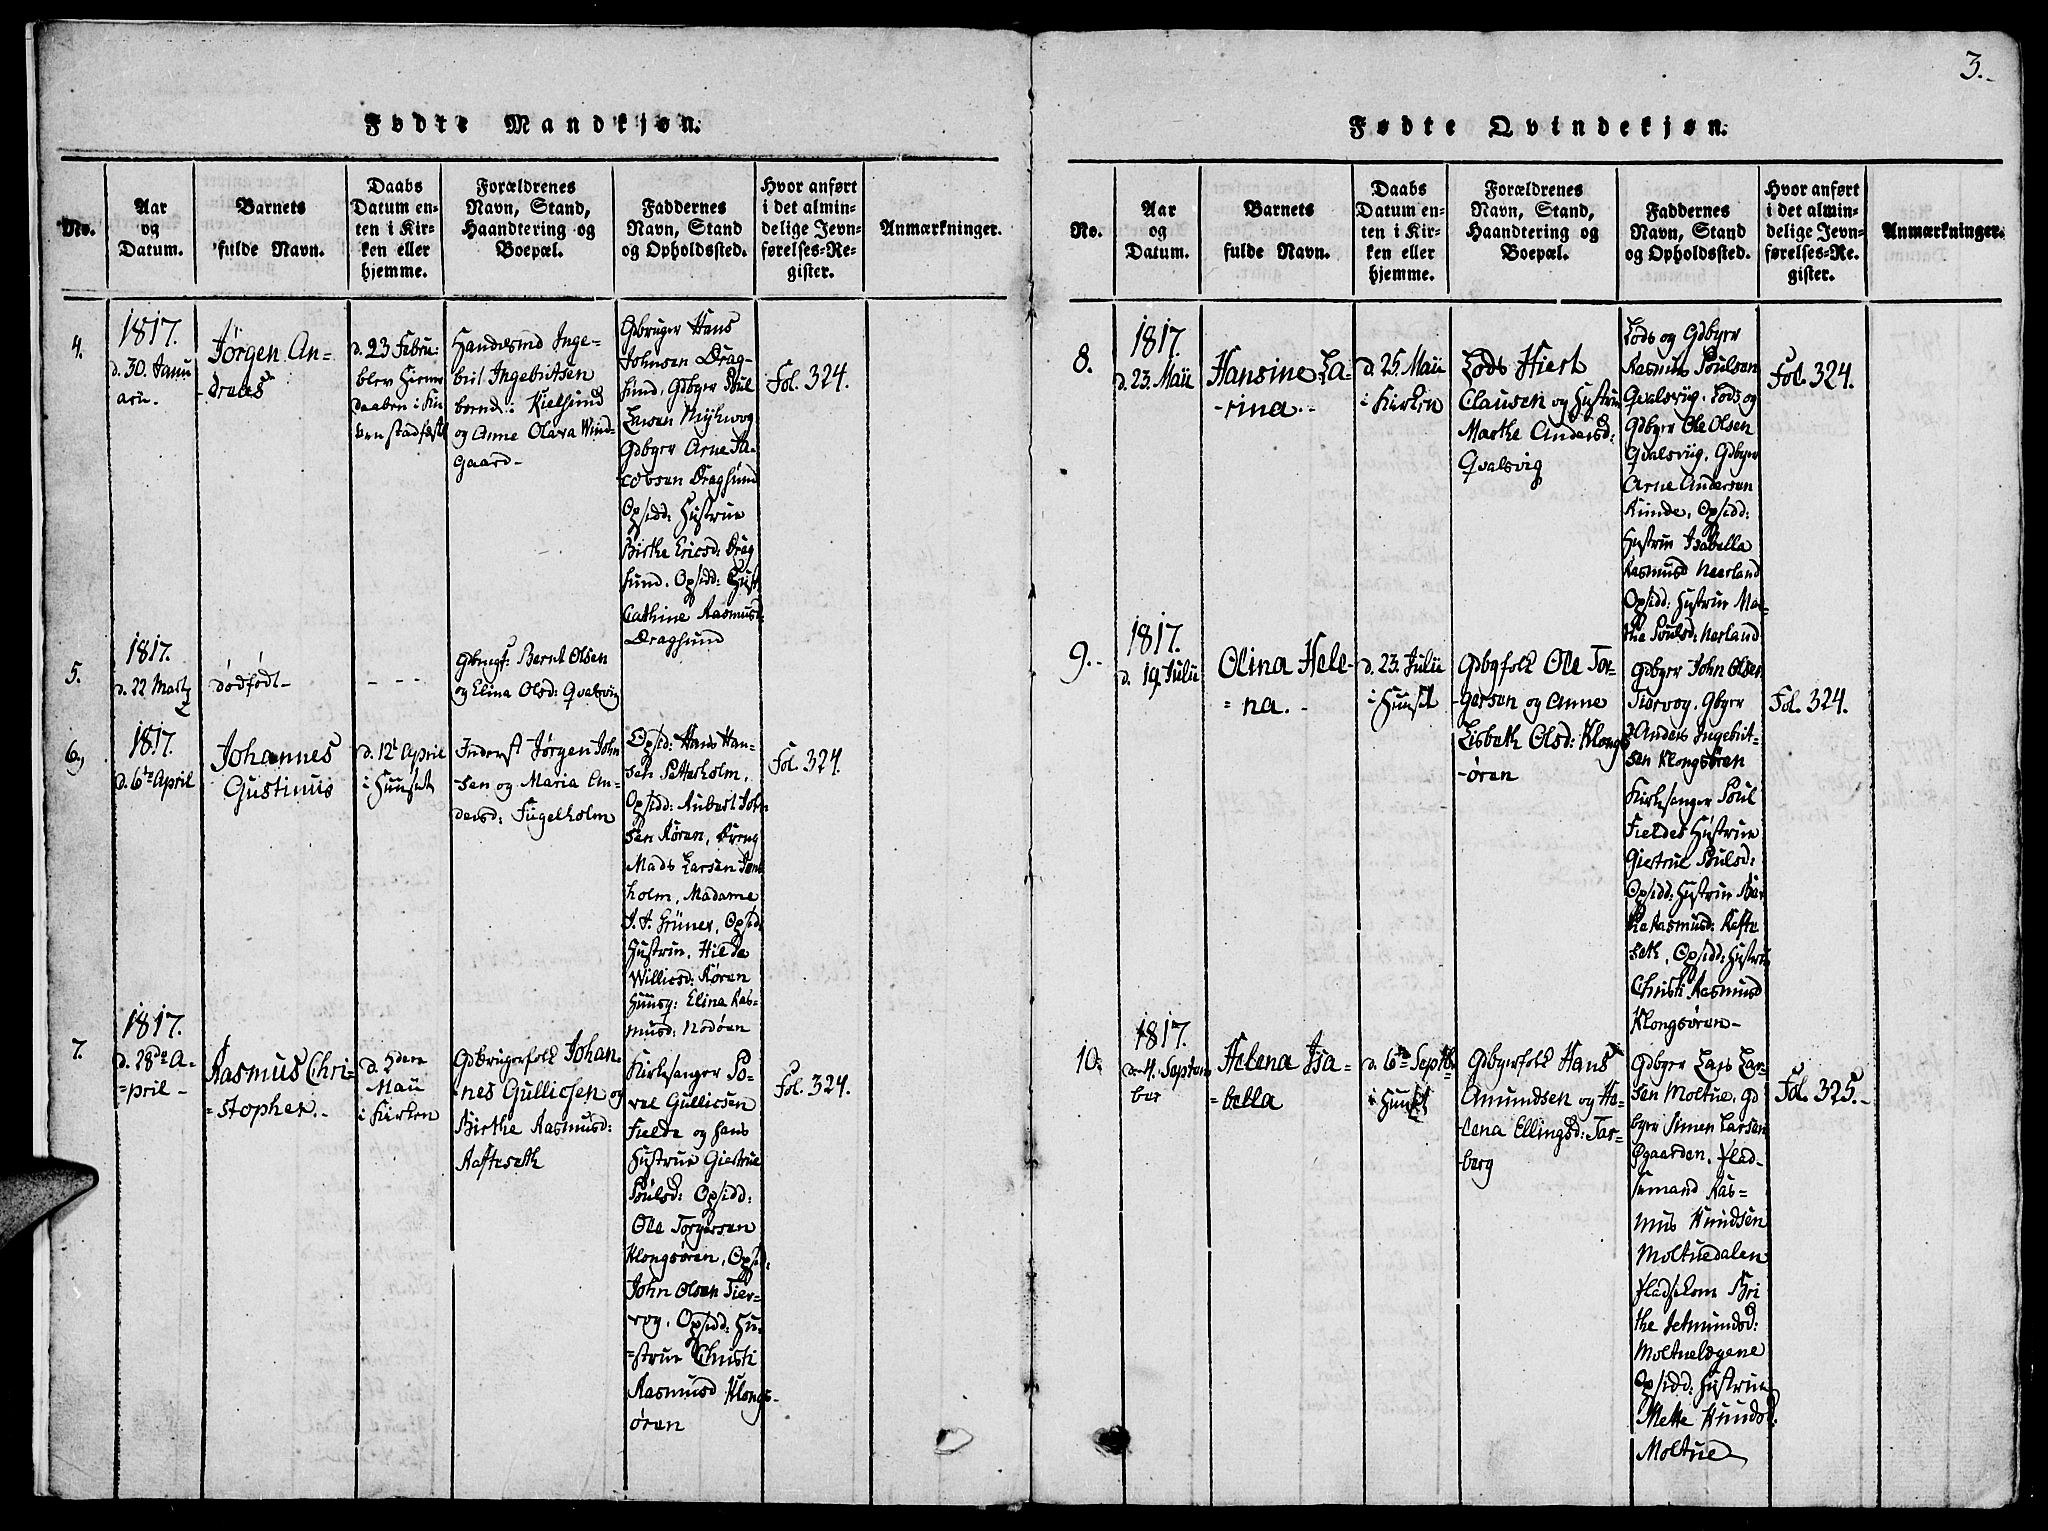 3.
Fødte Mandkjøn.
No.
Aar
og
Datum.
Barnets
fulde Navn.
Daabs
Datum en-
ten i Kir-
ken eller
hjemme.
Forældrenes
Navn, Stand,
Haandtering og
Boepæl.
Faddernes
Navn, Stand
og Opholdssted.
Hvor anført
i det almin-
delige Jevn-
førelses-Re-
gister.
Anmærkninger.
4.
1817.
d. 30. Janu
arii.
Jørgen An-
dreas
d. 23 Febru:
blev Hiemme
daaben i Kir
ken stadfæst
Handelsmd Inge-
bril Ingebritsen
Kielsund
og Anne Olava Wind-
gaard-
Gdbruger Hans
Johnsen Drag-
sund, Gdbgr Poul
Larsen Myhvog
Gdbgr Arne Ja-
cobsen Dragsund
Opsidd: Hustrue
Birthe Ericsd: Drag
sund. Opsidd: Hust
Cathine Rasmusd:
Dragsund
Fol. 324.
5.
1817.
d. 22 Marty
dødfødt-
- - -
Gdbrugf: Bernt Olsen
og Elina Olsd: Qvalsvig
6.
1817.
d. 6te April
Johannes
Gustinus
d. 12t April
i Huuset
Inderst Jørgen John
sen og Maria An-
dersd: Fugelholm
Opsid: Hans Han-
sen Petterholm,
Opsidd: Aubert John
sen Røren, Dreng
Mads Larsen
holm, Madame
Grüner, Opsid:
Hustrue, Hilde
Willicsd: Røren
Huusq: Elina Ras-
musd: Nodøen
Fol. 324.
7.
1817.
d. 28de A-
=pril -
Rasmus Chri-
=stopher. -
d. 5denn
Maii
i Kirken
Gdbrugerfolk Johan-
nes Gullicsen og
Birthe Rasmusd:
Rafteseth
Kirkesanger Po-
vel Gullicsen
Fielde og hans
Hustrue Giertrue
Poulsd: Opsidd:
Ole Torgersen
Klongsøren, Opsid:
John Olsen Tier-
vog, Opsidd: Hu-
=strue Christi
Rasmusd Klongs-
øren
Fol. 324.
Fødte Qvindekjøn.
No.
Aar
og
Datum.
Barnets
fulde Navn.
Daabs
Datum en-
ten i Kir-
ken eller
hjemme.
Forældrenes
Navn, Stand,
Haandtering og
Boepæl.
Faddernes
Navn, Stand
og Opholdssted.
Hvor anført
i det almin-
delige Jevn-
førelses-Re-
gister.
Anmærkninger.
8.
1817.
d. 23. Maii
Hansine La-
-rina. -
d. 25. Maii
i Kirken
Lods Hiert
Clausen og Hustrue
Marthe Andersd:
Qvalsvig
Lods og Gdbgr
Rasmus Poulsen
Qvalsviig, Lods og
Gdbgr Ole Olsen
Qvalsviig, Gdbgr
Arne Andersen
Runde, Opsidd:
Hustrue Isabella
Rasmusd Neerland
Opsidd: Hustrue Mar-
the Poulsd: Nerland
Fol. 324.
9. -
1817.
d. 19. Julii
Olina Hele-
=na. -
d. 23. Julii
i Huuset
Gdbgfolk Ole Tor-
gersen og Anne
Lisbeth Olsd: Klongs
-øren
Gdbgr John Olsen
Tiervog, Gbgr
Anders Ingebrit-
sen Klongsøren
Kirkesanger Poul
Fieldes Hustrue
Giertrue Poulsd:
Opsidd: Hustrue Bir
the Rasmusd: Rafte
seth, Opsidd: Hustrue
Christi Rasmusd
Klongsøren-
Fol. 324.
10.
1817.
d. 4. Septem
ber
Helena Isa-
=bella
d. 6te Septb.
i Huuset
Gdbgerfolk Hans
Amundsen og He-
lena Ellingsd: Tar-
berg
Gdbgr Lars Lar-
sen Moltue, Gd
bgr Simen Larsen
Øgaarden, Plad-
semand Ras-
mus Knudsen
Moltuedalen
Pladsekone Bri
the Jetmundsd:
Moltuelægene
Opsidd: Hustrue
Mette Knudsd:
Moltue
Fol. 325. -